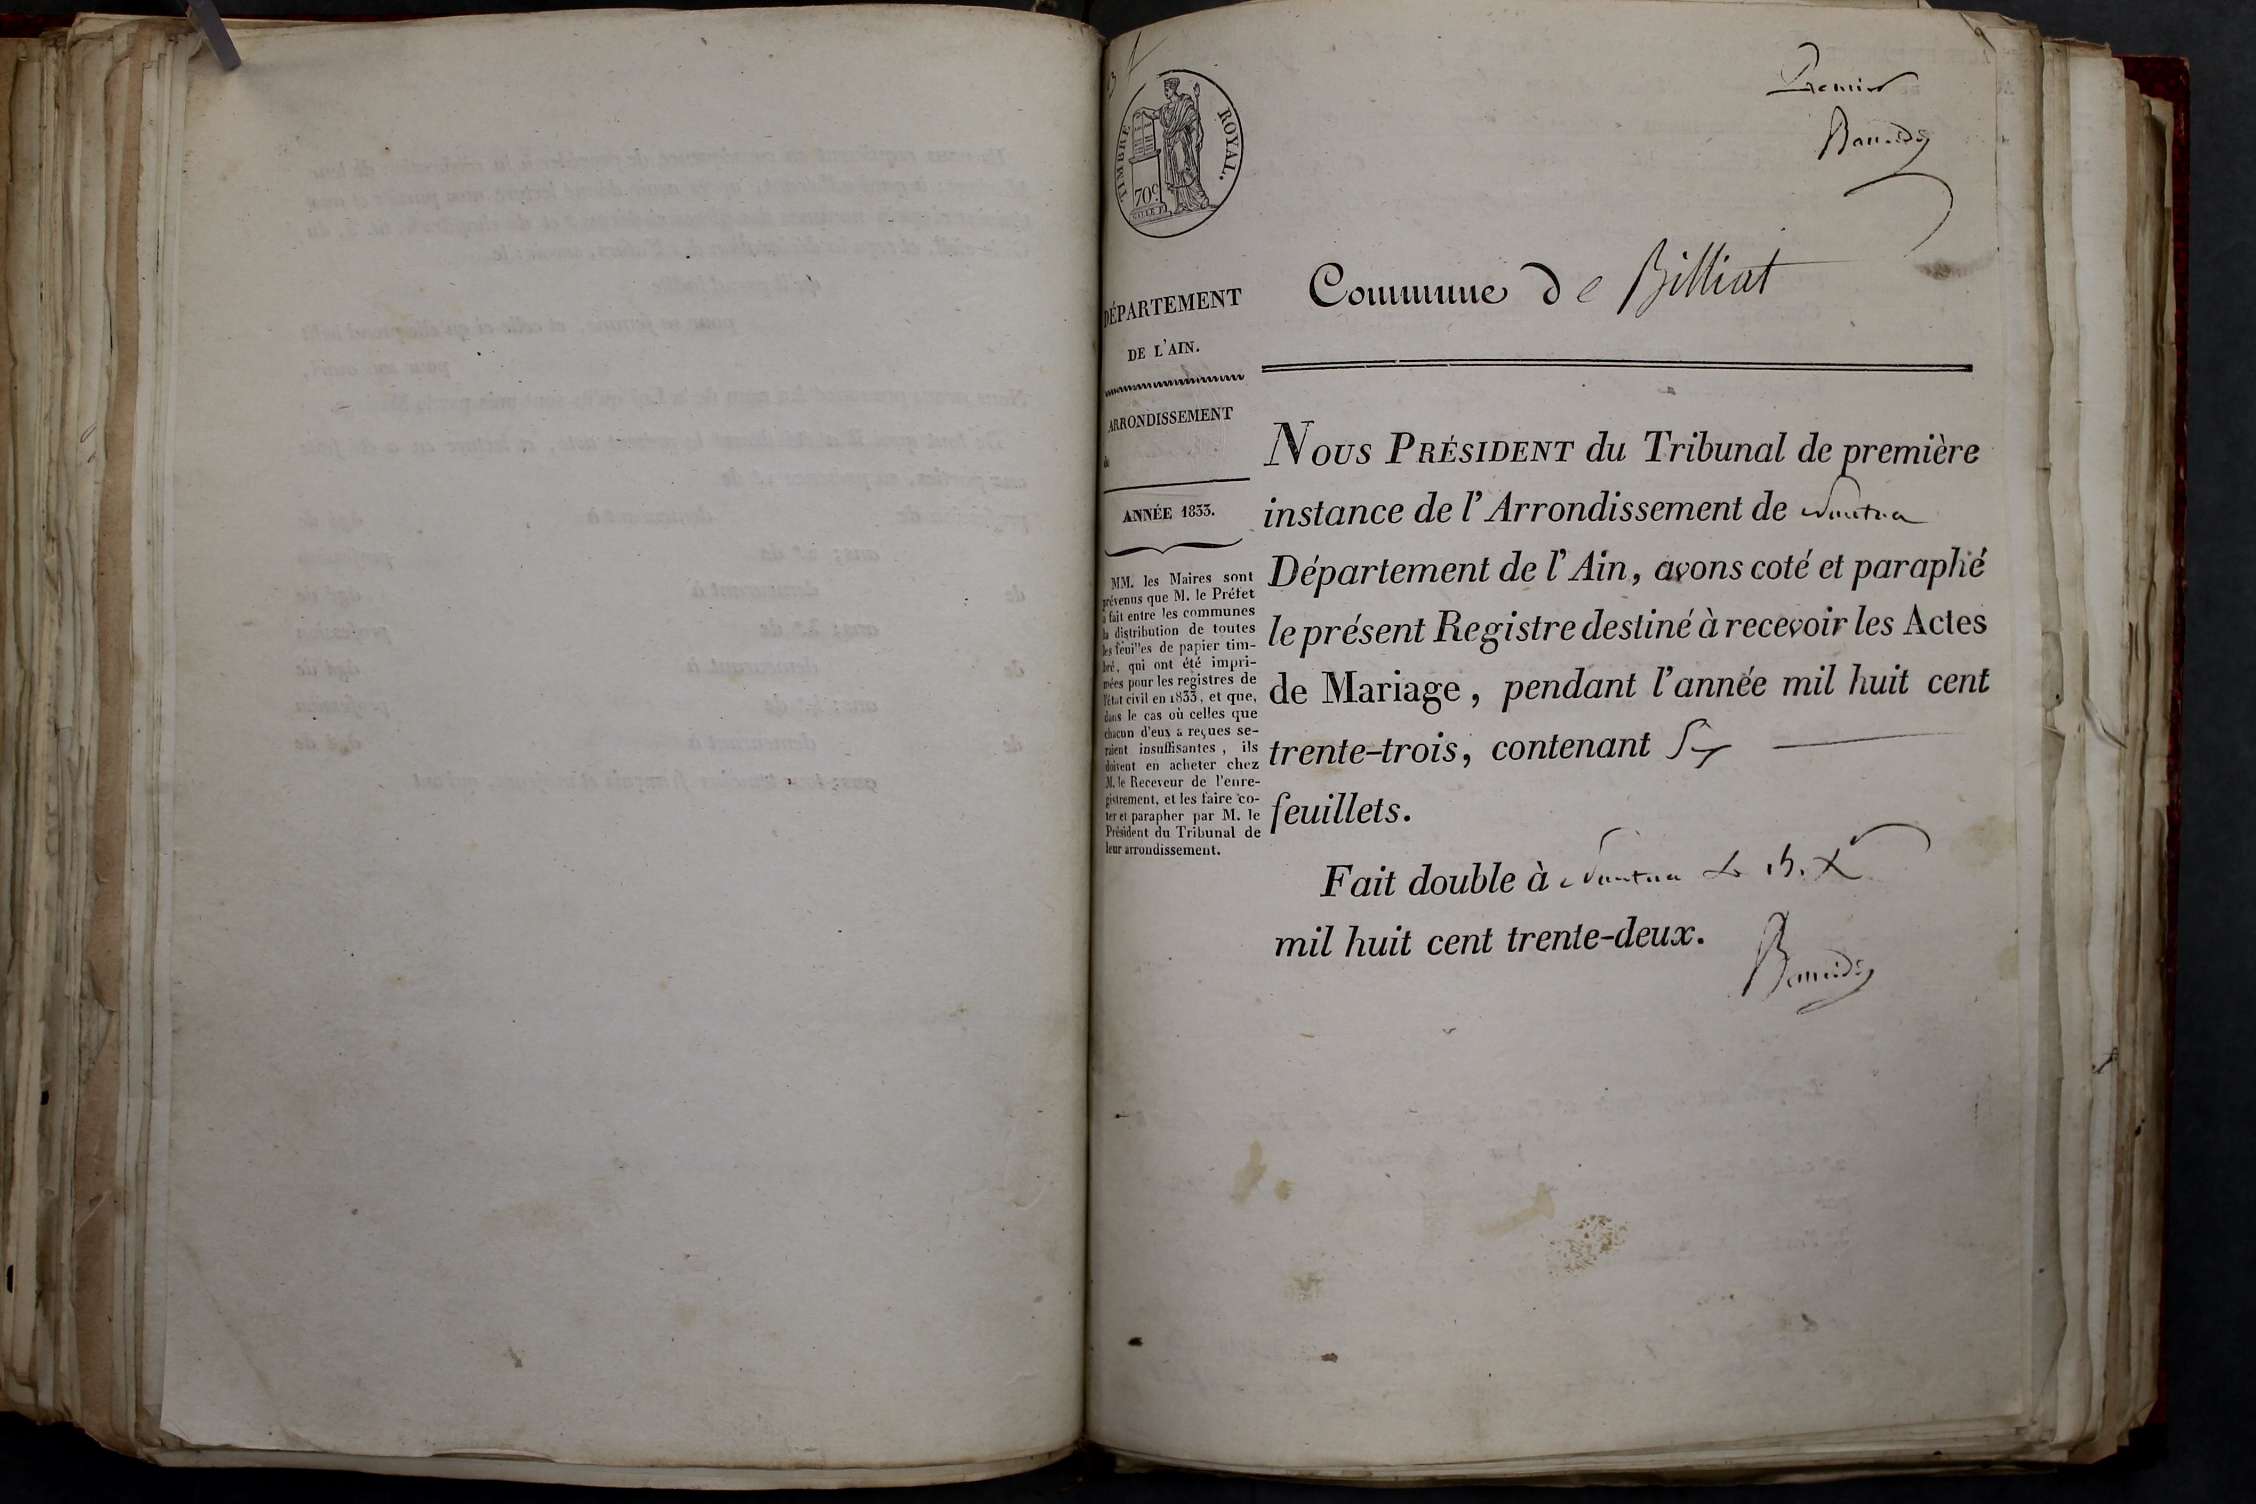 Premier
TIMBRE ROYAL.
70c.
Commune de Billiat
DÉPARTEMENT
DE L'AIN.
ARRONDISSEMENT
de
ANNÉE 1833.
MM. les Maires sont
prévenus que M. le Préfet
a fait entre les communes
la distribution de toutes
les feuilles de papier tim-
bré, qui ont été impri-
mées pour les registres de
l'état civil en 1833, et que,
dans le cas où celles que
chacun d'eux a reçues se-
raient insuffisantes, ils
doivent en acheter chez
M. le Receveur de l'enre-
gistrement, et les faire co-
ter et parapher par M. le
Président du Tribunal de
leur arrondissement.
NOUS PRÉSIDENT du Tribunal de première
instance de l'Arrondissement de Nantua
Département de l'Ain, avons coté et paraphé
le présent Registre destiné à recevoir les Actes
de Mariage, pendant l'année mil huit cent
trente-trois, contenant
feuillets.
Fait double à Nantua le 15. X
mil huit cent trente-deux.